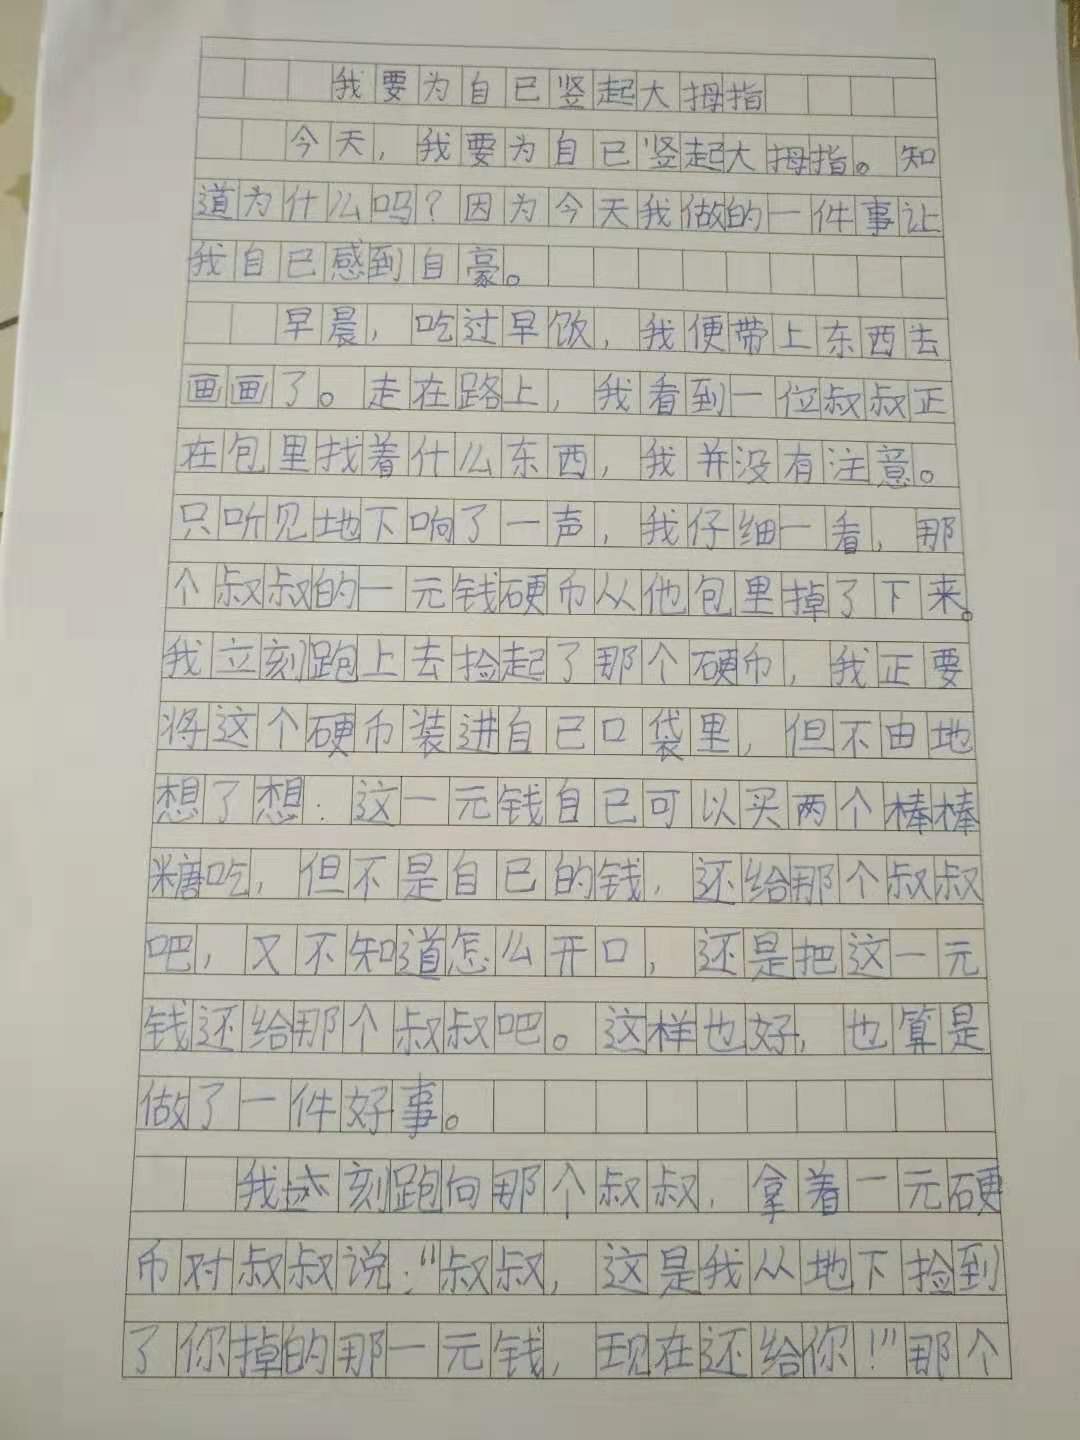 我要为自已竖起大拇指
今天，我要为自已竖起大拇指。知
道为什么吗？因为今天我做的一件事让
我自已感到自豪。
早晨，吃过早饭，我便带上东西去
画画了。走在路上，我看到一位叔叔正
在包里找着什么东西，我并没有注意。
只听见地下响了一声，我仔细一看，那
个叔叔的一元钱硬币从他包里掉了下来。
我立刻跑上去捡起了那个硬币，我正要
将这个硬币装进自已口袋里，但不由地
想了想：这一元钱自已可以买两个棒棒
糖吃，但不是自已的钱，还给那个叔叔
吧，又不知道怎么开口，还是把这一元
钱还给那个叔叔吧。这样也好，也算是
做了一件好事。
我立刻跑向那个叔叔，拿着一元硬
币对叔叔说：“叔叔，这是我从地下捡到
了你掉的那一元钱，现在还给你！”那个